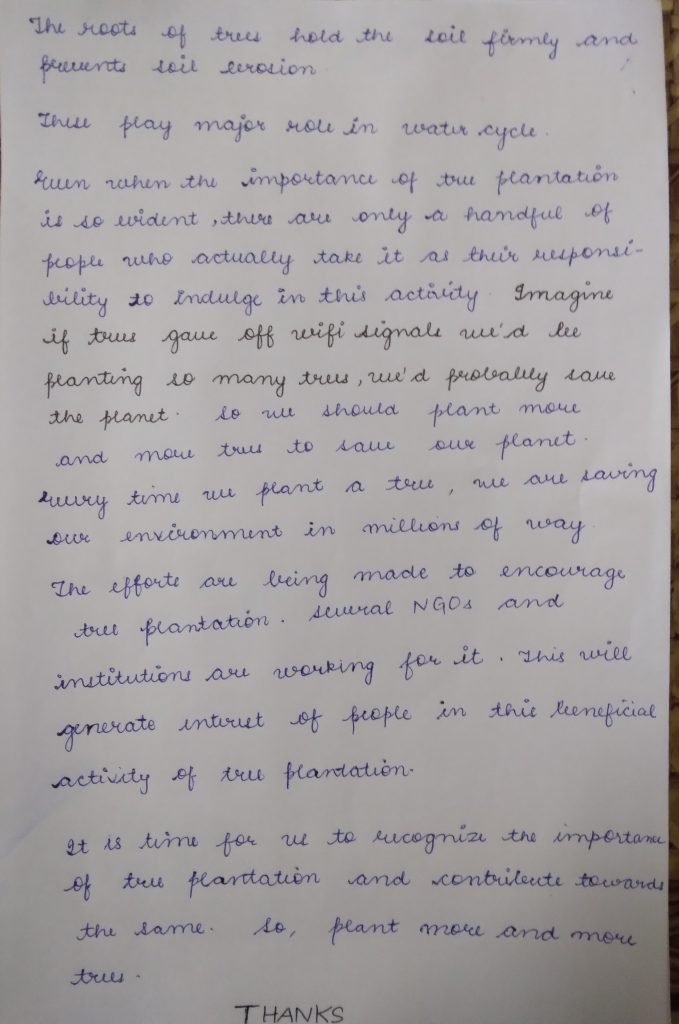 The roots of trees hold the soil firmly and
prevents soil erosion
These play major role in water cycle.
Even when the importance of tree plantation
is so evident, there are only a handful of
people who actually take it as their responsi-
bility to indulge in this activity. Imagine
if trees gave off wifi signals we'd be
planting so many trees, we'd probably save
the planet. So we should plant more
and more trees to save our planet.
Every time we plant a tree, we are saving
our environment in millions of way.
The efforts are being made to encourage
tree plantation. Several NGOs and
institutions are working for it. This will
generate interest of people in this beneficial
activity of tree plantation.
It is time for us to recognize the importance
of tree plantation and contribute towards
the same. So, plant more and more
trees.
THANKS